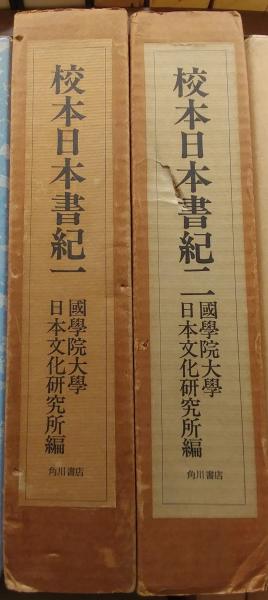 校本日本書紀一
國學院大學
日本文化研究所編
角川書店
校本日本書紀二
國學院大學
日本文化研究所編
角川書店